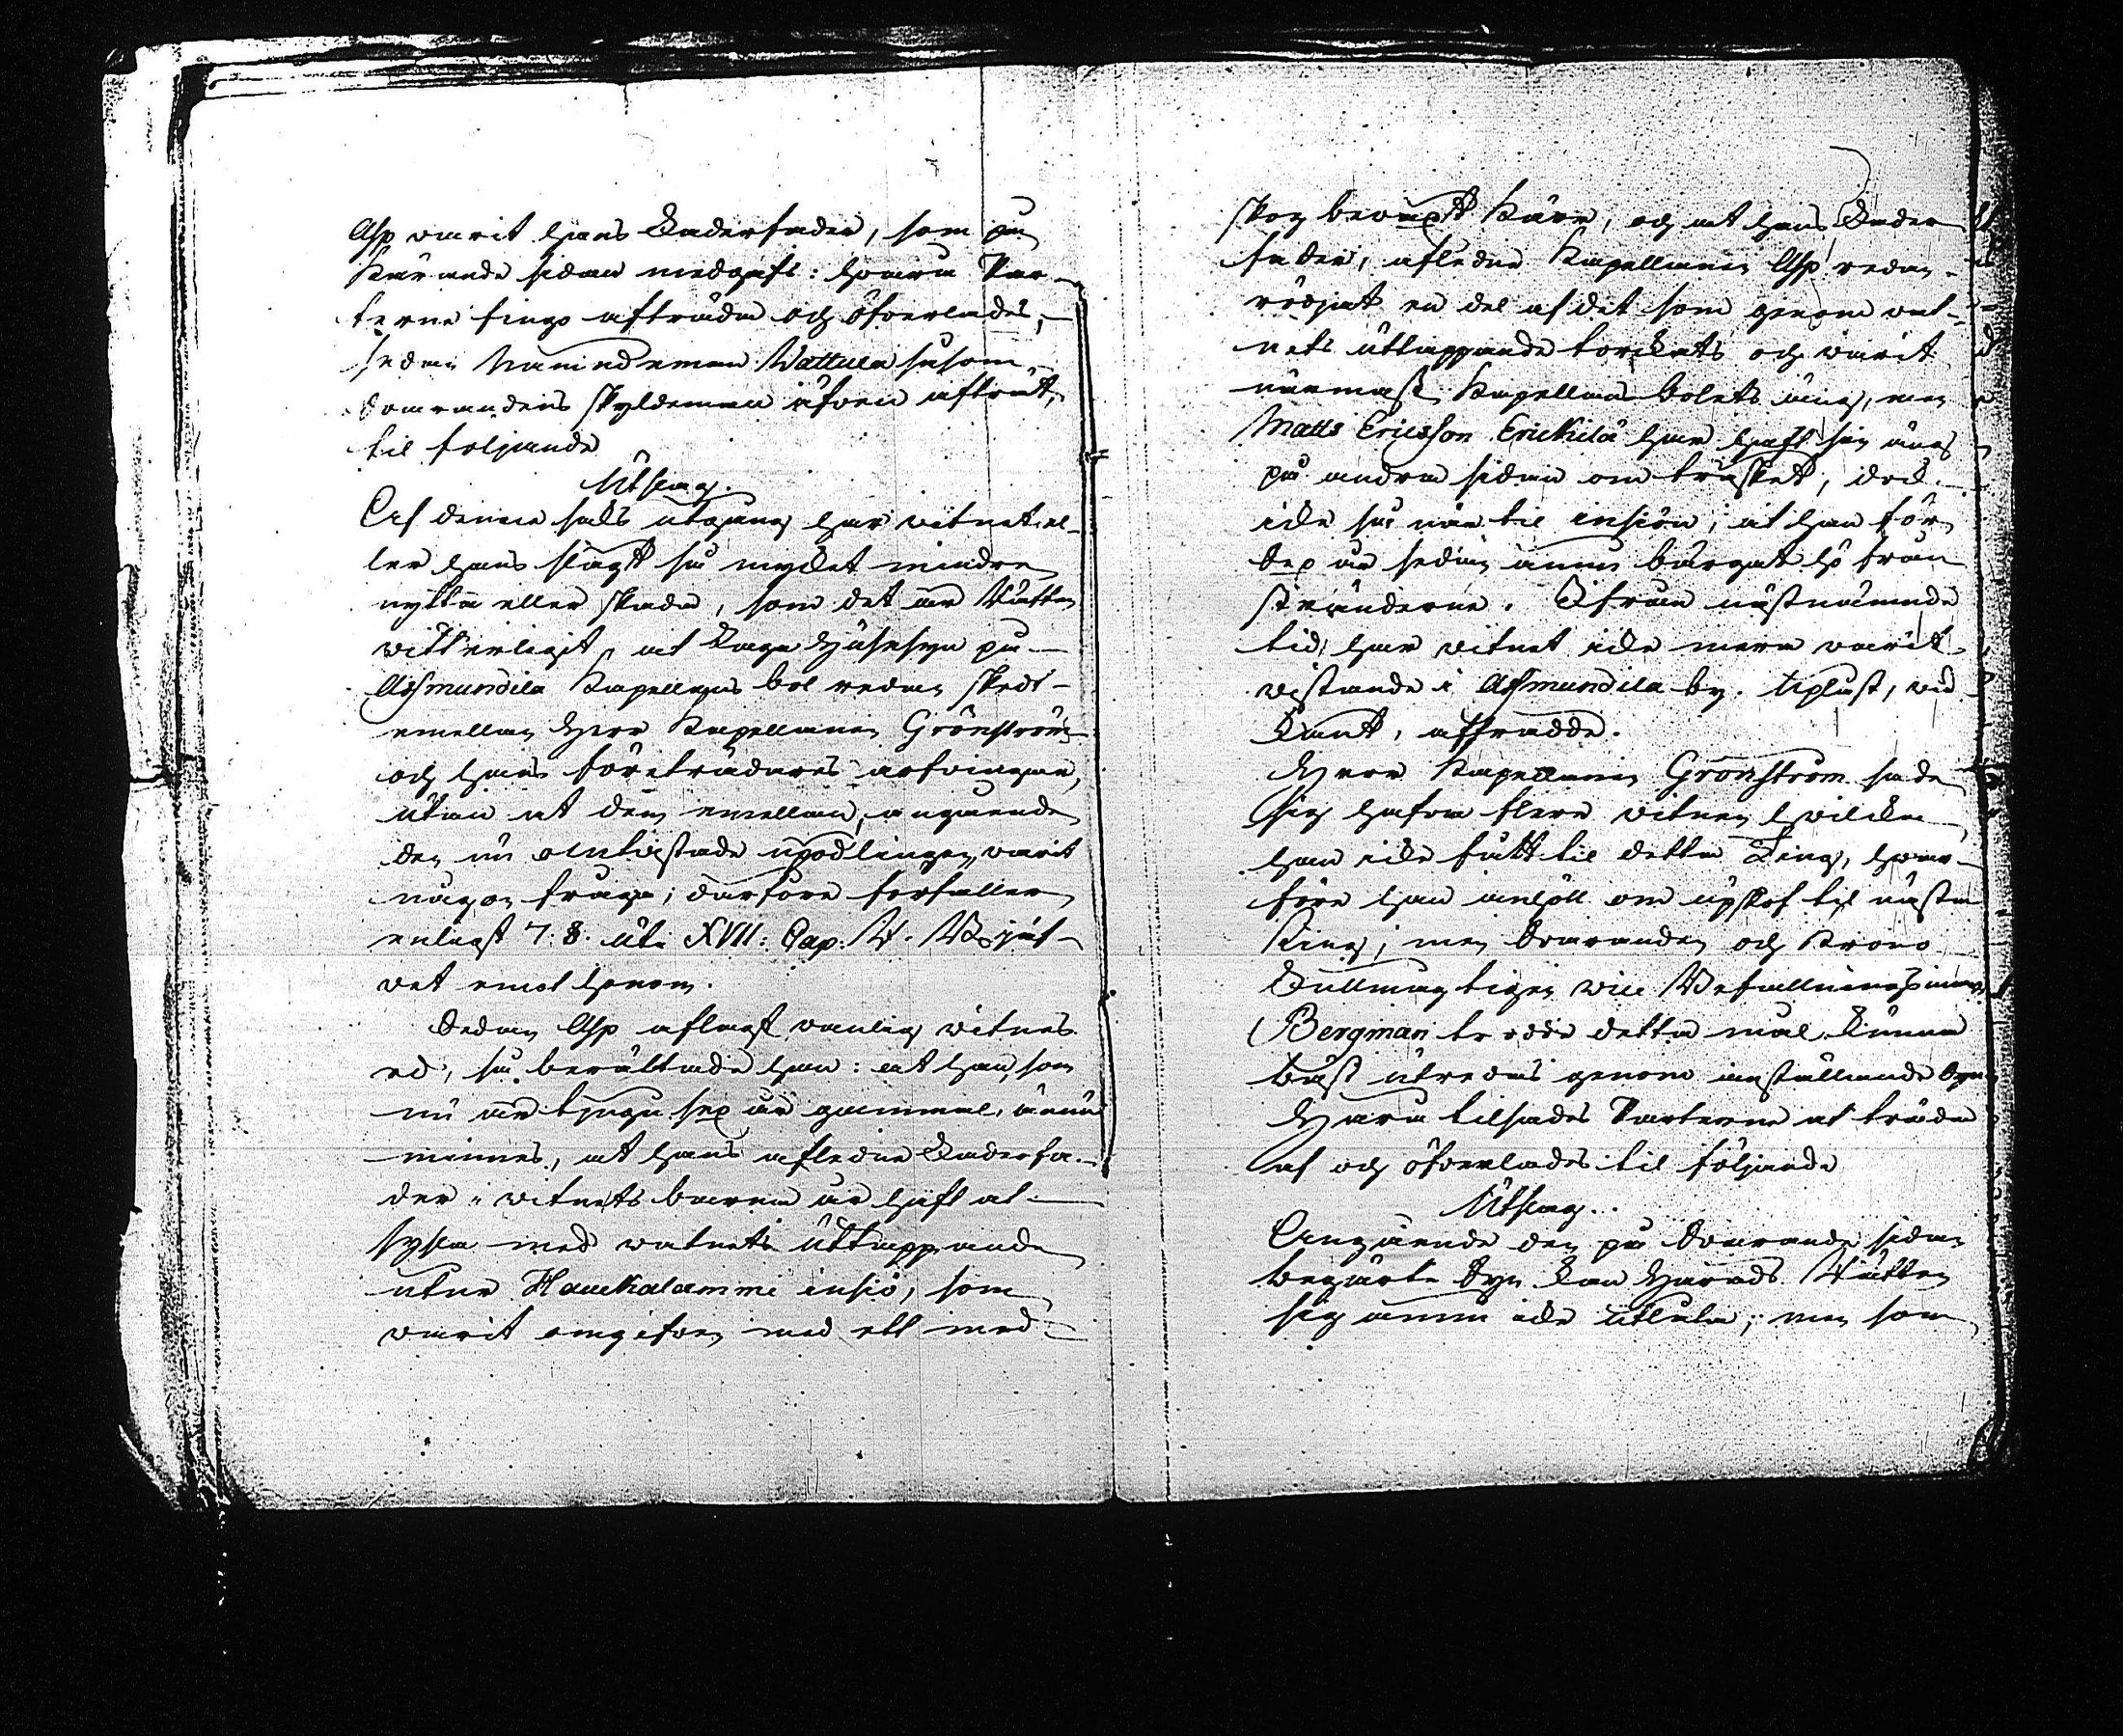 Asp varit hans Faderfader, som på
Kärande sidan medgafs: hvara Par-
terne fingo afträda och öfverlades,
sedan Nämndeman Wattula såsom
Svarandens skyldeman äfven afträdt,
til följande
Utslag.
Af denna saks utgång har vitnet el-
ler hans slägt så mycket mindre
nytta eller skada, som det är Rätten
vitterligit, at Laga Husesyn på
Assmundila Kapellans bol redan skedt
emellan Herr Kapellanen Grönström
och hans företrädares arfvingar,
utan at dem emellan, angående
den nu omtvistade upodlingen varit
någon fråga; därföre förfaller
enligt 7. §. uti XVII: Cap: R. B. jäf-
vet emot honom.
Sedan Asp aflagt vanlig vitnes
ed, så berättade han: at han, som
nu är tjugu sex år gammal, ännu
minnes, at hans afledne Faderfa-
der i vitnets barna år haft at
sysla med vatnets uttappande
utur Hauckalammi insiö, som
varit omgifven med ett med
skog bevuxit Kärr, och at hans Fader
fader, afledne Kapellanen Asp redan
rödjat en del af det som genom vat-
nets uttappande torckats och varit
närmast Kapellans bolets äng, men
Matts Ericsson Erickilä har haft sin äng
på andra sidan om träsket, dock
icke så när til insiön, at han för
sex år sedan ännu bärgat hö från
stränderne. Ifrån nästnämnde
tid har vitnet icke mera varit
vistande i Assmundila by. Upläst, ved
kändt, afträdde.
Herr Kapellanen Grönström sade
sig hafva flere vitnen hvilcka
han icke fått til detta Ting, hvar-
före han anhöll om upskof til nästa
Ting; men Svaranden och Krono
Fullmägtigen vice Befallningsman
Bergman trodde detta mål kunna
bäst utredas genom anställande Syn
Hvara tilsades Parterne at träda
af och öfverlades til följande
Utslag.
Angående den på Svarande sidan
begärte Syn kan Härads Rätten
sig ännu icke utlåta; men som